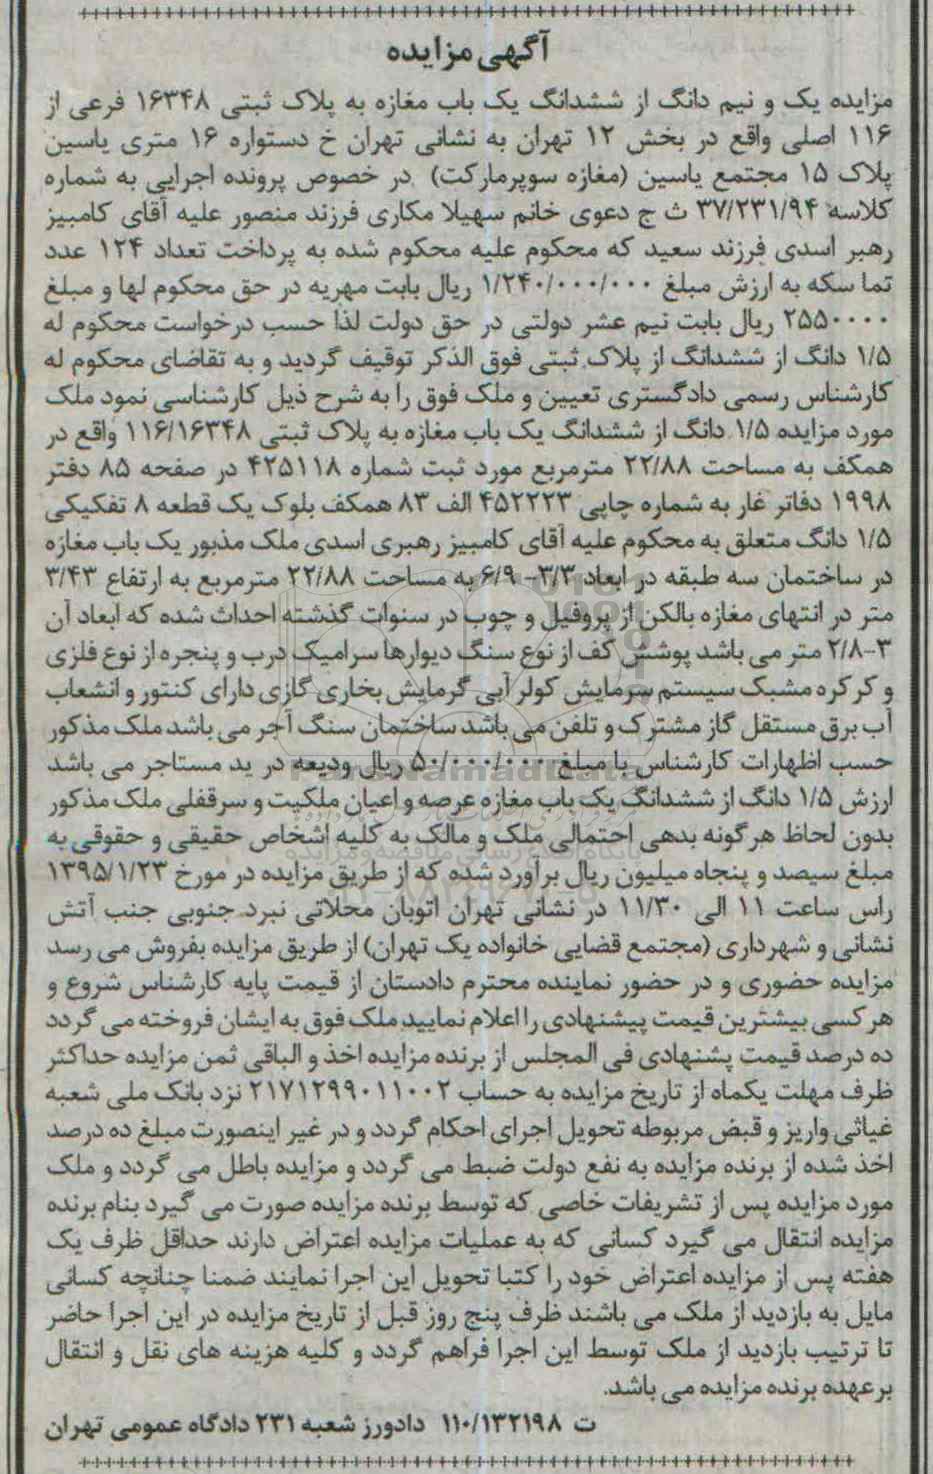 آگهی مزایده
مزایده یک و نیم دانگ از ششدانگ یک باب مغازه به پلاک ثبتی ۱۶۳۴۸ فرعی از
۱۱۶ اصلی واقع در بخش ۱۲ تهران به نشانی تهران خ دستواره ۱۶ متری یاسین
پلاک ۱۵ مجتمع یاسین (مغازه سوپرمارکت) در خصوص پرونده اجرایی به شماره
کلاسه ۳۷/۲۳۱/۹۴ ث ج دعوی خانم سهیلا مکاری فرزند منصور علیه آقای کامبیز
رهبر اسدی فرزند سعید که محکوم علیه محکوم شده به پرداخت تعداد ۱۲۴ عدد
تما سکه به ارزش مبلغ ۱/۲۴۰/۰۰۰/۰۰۰ ریال بابت مهریه در حق محکوم لها و مبلغ
۲۵۵۰۰۰۰ ریال بابت نیم عشر دولتی در حق دولت لذا حسب درخواست محکوم له
۱/۵ دانگ از ششدانگ از پلاک ثبتی فوق الذکر توقیف گردید و به تقاضای محکوم له
کارشناس رسمی دادگستری تعیین و ملک فوق را به شرح ذیل کارشناسی نمود ملک
مورد مزایده ۱/۵ دانگ از ششدانگ یک باب مغازه به پلاک ثبتی ۱۱۶/۱۶۳۴۸ واقع در
همکف به مساحت ۲۲/۸۸ مترمربع مورد ثبت شماره ۴۲۵۱۱۸ در صفحه ۸۵ دفتر
۱۹۹۸ دفاتر غار به شماره چاپی ۴۵۲۲۲۳ الف ۸۳ همکف بلوک یک قطعه ۸ تفکیکی
۱/۵ دانگ متعلق به محکوم علیه آقای کامبیز رهبری اسدی ملک مذبور یک باب مغازه
در ساختمان سه طبقه در ابعاد ۳/۳- ۶/۹ به مساحت ۲۲/۸۸ مترمربع به ارتفاع ۳/۴۳
متر در انتهای مغازه بالکن از پروفیل و چوب در سنوات گذشته احداث شده که ابعاد آن
۲/۸-۳ متر می باشد پوشش کف از نوع سنگ دیوارها سرامیک درب و پنجره از نوع فلزی
و کرکره مشبک سیستم سرمایش کولر آبی گرمایش بخاری گازی دارای کنتور و انشعاب
آب برق مستقل گاز مشترک و تلفن می باشد ساختمان سنگ آجر می باشد ملک مذکور
حسب اظهارات کارشناس با مبلغ ۵۰/۰۰۰/۰۰۰ ریال ودیعه در ید مستاجر می باشد
ارزش ۱/۵ دانگ از ششدانگ یک باب مغازه عرصه و اعیان ملکیت و سرقفلی ملک مذکور
بدون لحاظ هرگونه بدهی احتمالی ملک و مالک به کلیه اشخاص حقیقی و حقوقی به
مبلغ سیصد و پنجاه میلیون ریال برآورد شده که از طریق مزایده در مورخ ۱۳۹۵/۱/۲۳
راس ساعت ۱۱ الی ۱۱/۳۰ در نشانی تهران اتوبان محلاتی نبرد جنوبی جنب آتش
نشانی و شهرداری (مجتمع قضایی خانواده یک تهران) از طریق مزایده بفروش می رسد
مزایده حضوری و در حضور نماینده محترم دادستان از قیمت پایه کارشناس شروع و
هرکسی بیشترین قیمت پیشنهادی را اعلام نمایید ملک فوق به ایشان فروخته می گردد
ده درصد قیمت پشنهادی فی المجلس از برنده مزایده اخذ و الباقی ثمن مزایده حداکثر
ظرف مهلت یکماه از تاریخ مزایده به حساب ۲۱۷۱۲۹۹۰۱۱۰۰۲ نزد بانک ملی شعبه
غیاثی واریز و قبض مربوطه تحویل اجرای احکام گردد و در غیر اینصورت مبلغ ده درصد
اخذ شده از برنده مزایده به نفع دولت ضبط می گردد و مزایده باطل می گردد و ملک
مورد مزایده پس از تشریفات خاصی که توسط برنده مزایده صورت می گیرد بنام برنده
مزایده انتقال می گیرد کسانی که به عملیات مزایده اعتراض دارند حداقل ظرف یک
هفته پس از مزایده اعتراض خود را کتبا تحویل این اجرا نمایند ضمنا چنانچه کسانی
مایل به بازدید از ملک می باشند ظرف پنج روز قبل از تاریخ مزایده در این اجرا حاضر
تا ترتیب بازدید از ملک توسط این اجرا فراهم گردد و کلیه هزینه های نقل و انتقال
برعهده برنده مزایده می باشد.
ت ۱۱۰/۱۳۲۱۹۸ دادورز شعبه ۲۳۱ دادگاه عمومی تهران